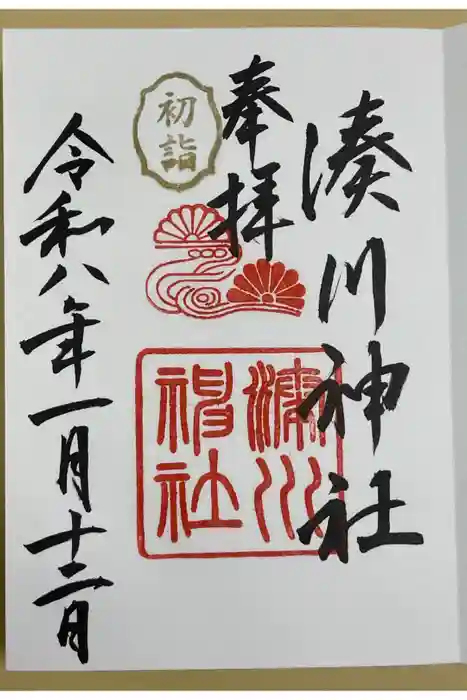 湊川神社
奉拝
初詣
湊川
神社
令和八年一月十二日